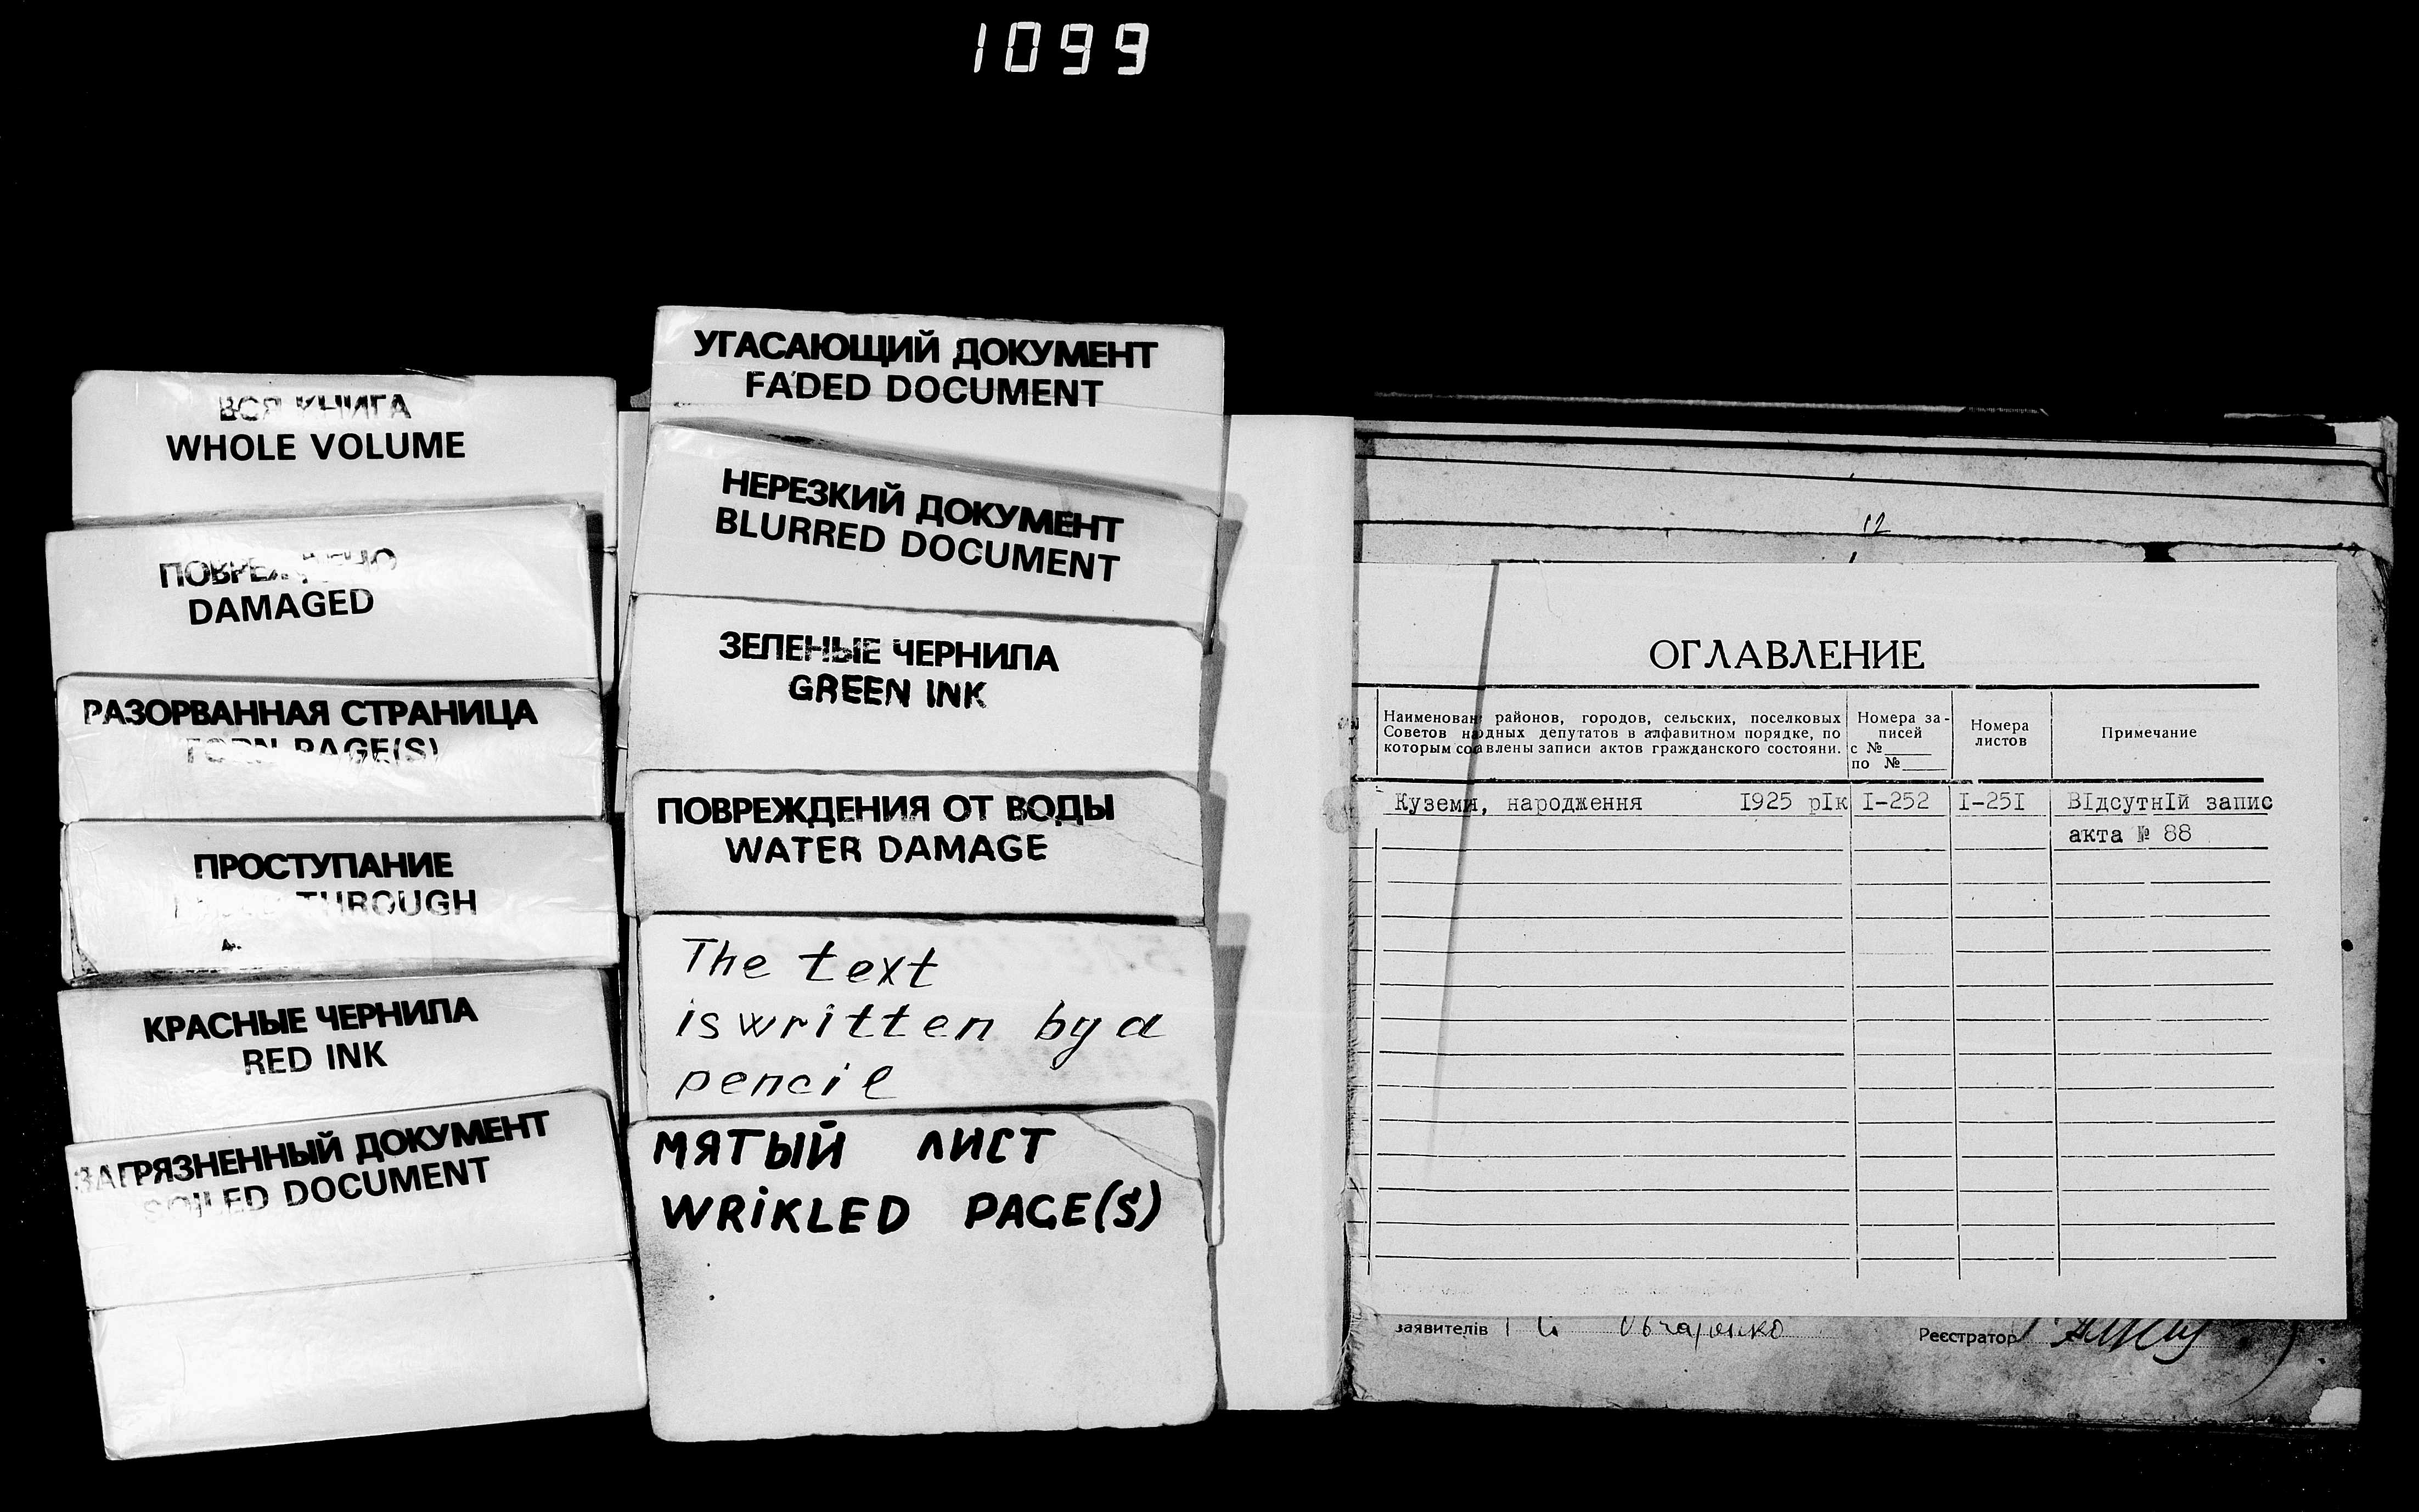 1099
ВСЯ КНИГА
WHOLE VOLUME
ПОВРЕЖДЕНО
DAMAGED
РАЗОРВАННАЯ СТРАНИЦА
TORN PAGE(S)
ПРОСТУПАНИЕ
THROUGH
КРАСНЫЕ ЧЕРНИЛА
RED INK
ЗАГРЯЗНЕННЫЙ ДОКУМЕНТ
SOILED DOCUMENT
УГАСАЮЩИЙ ДОКУМЕНТ
FADED DOCUMENT
НЕРЕЗКИЙ ДОКУМЕНТ
BLURRED DOCUMENT
ЗЕЛЕНЫЕ ЧЕРНИЛА
GREEN INK
ПОВРЕЖДЕНИЯ ОТ ВОДЫ
WATER DAMAGE
The text
is written by a
pencil
МЯТЫЙ ЛИСТ
WRIKLED PAGE(S)
12
ОГЛАВЛЕНИЕ
Наименован районов, городов, сельских, поселковых
Советов на дных депутатов в алфавитном порядке, по
которым со авлены записи актов гражданского состояни.
Номера за-
писей
с №
по №
Номера
листов
Примечание
Куземи, народження 1925 рIк I-252 I-25I ВIдсутнIй запис
акта № 88
заявителів Овчаренко Реєстратор